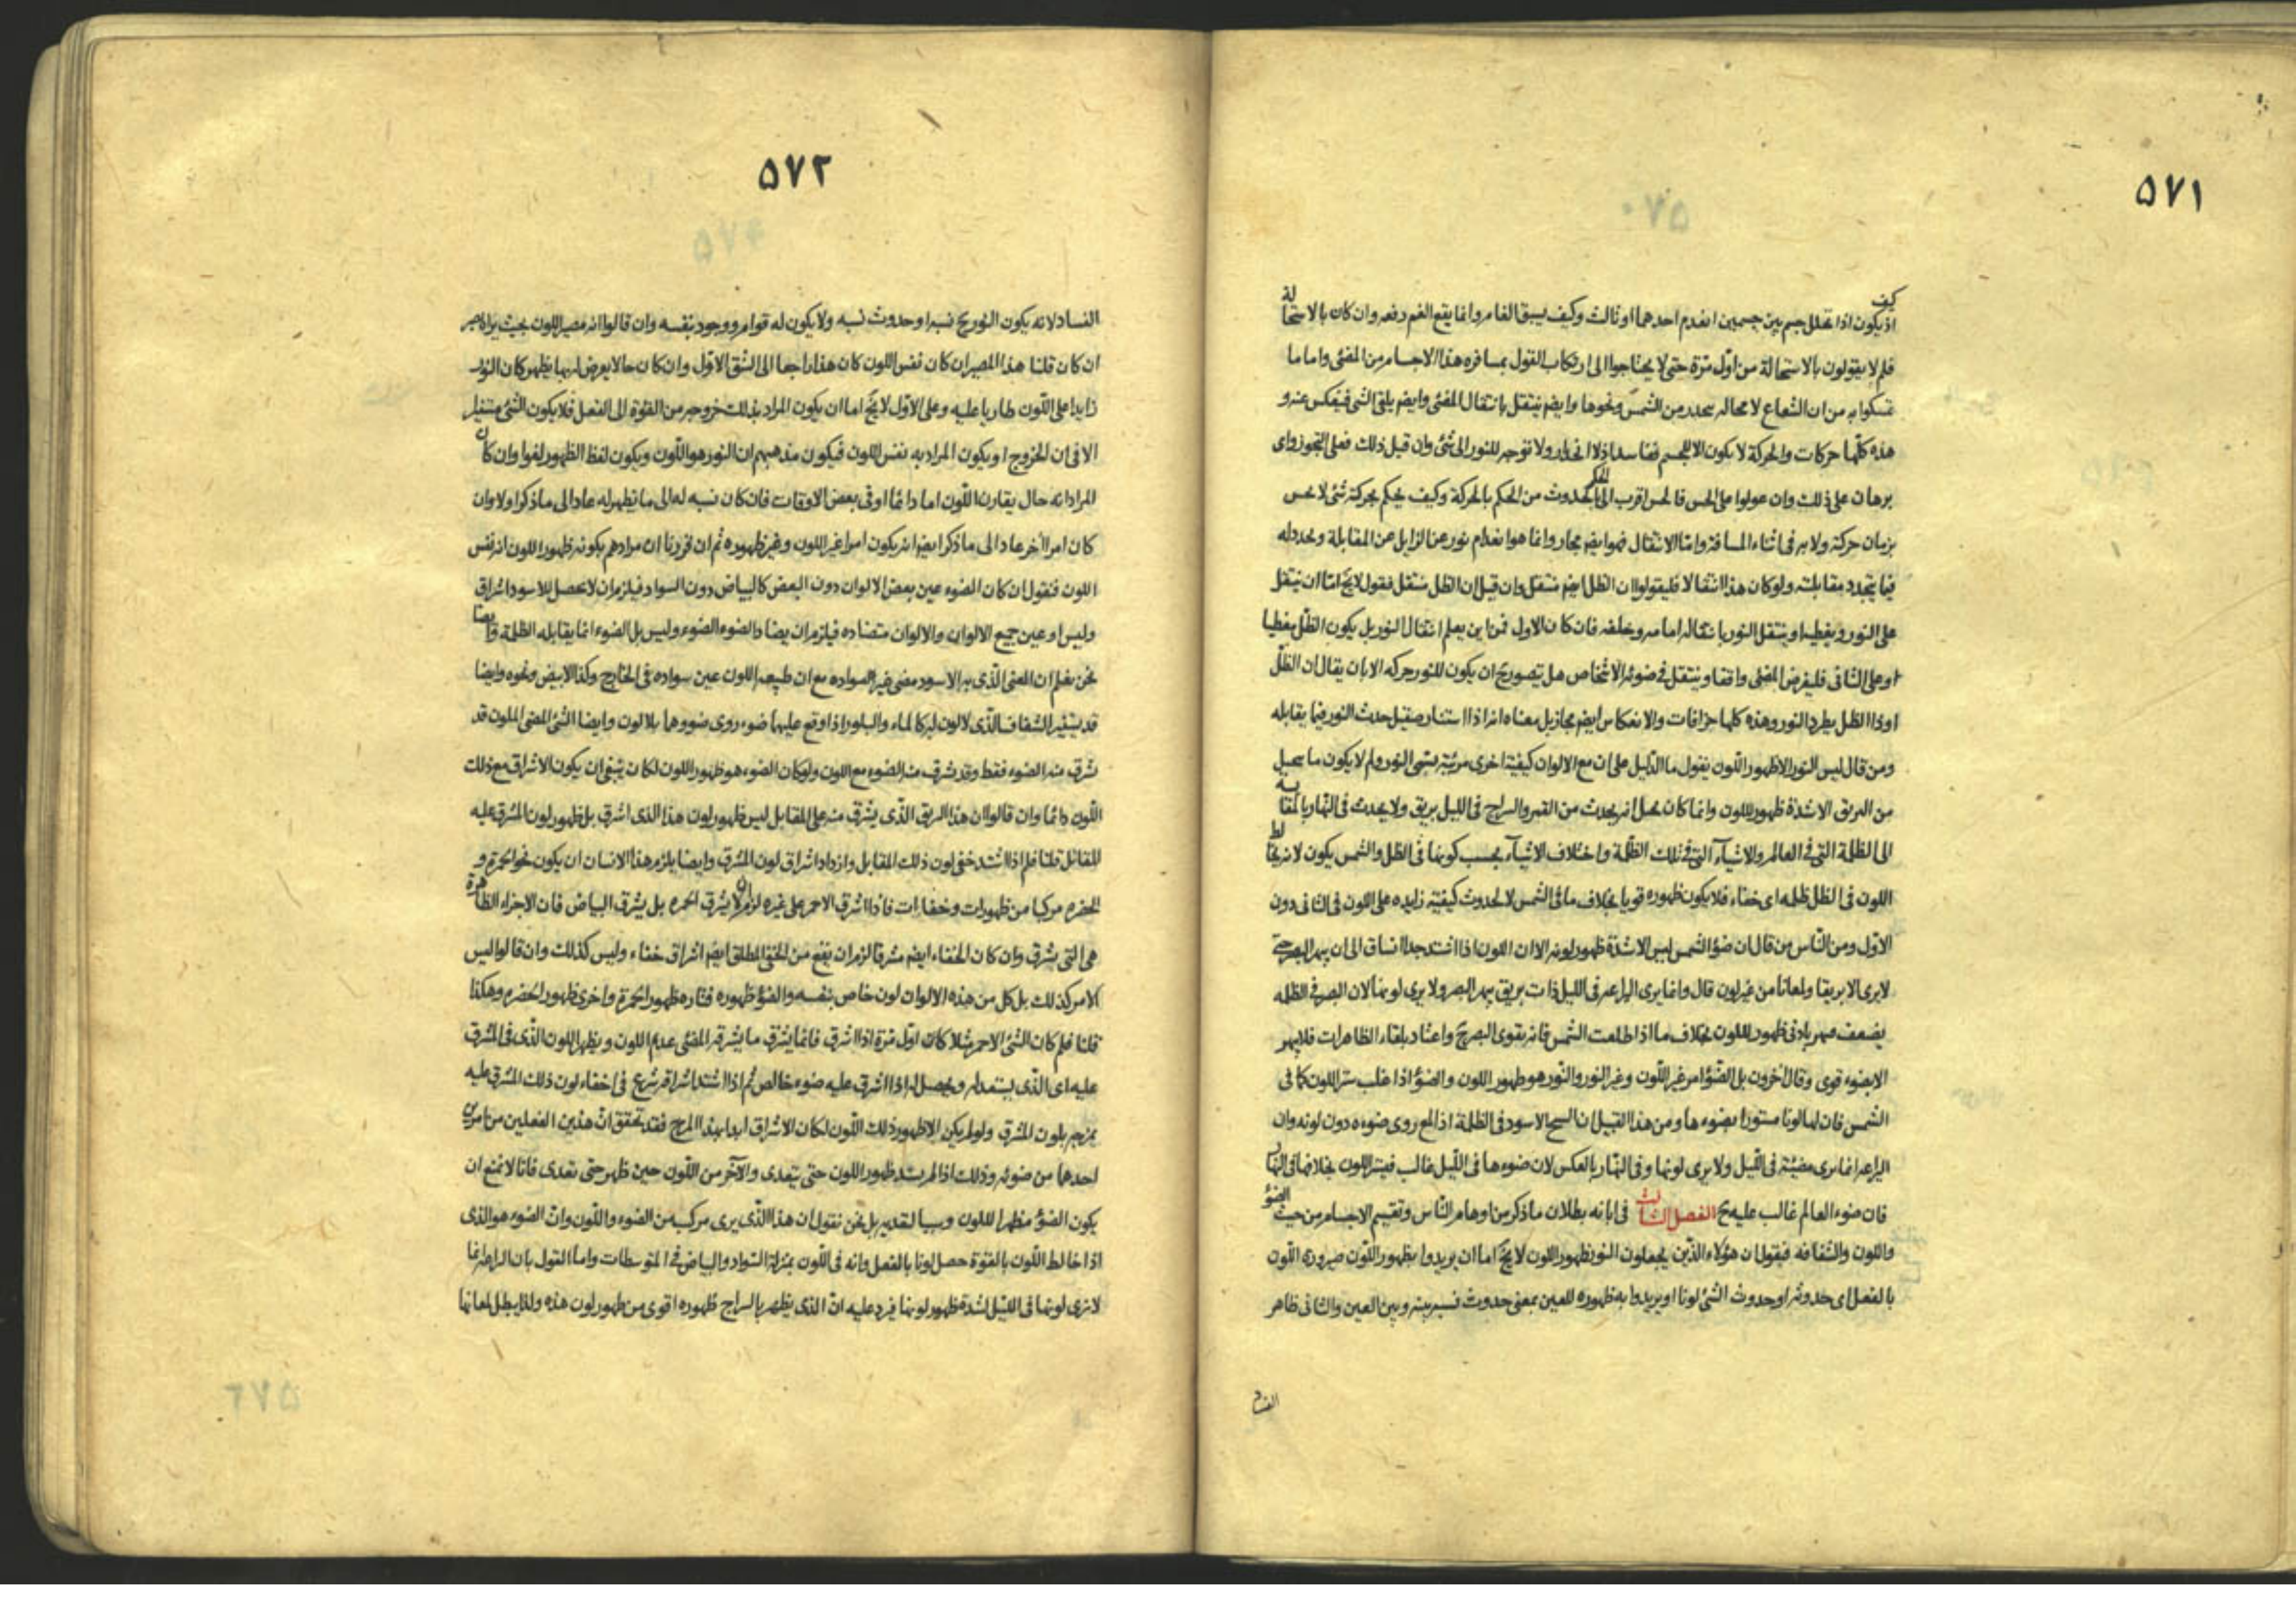 ۵۷۱
كيف
اذ يكون اذا تخلل جسم بين جسمين انعدم احدهما او ثالث وكيف يسبق الغامر وانما يقع الغم دفعه وان كان بالاستحالة
فلم لا يقولون بالاستحالة من اول مرة حتى لا يحتاجوا الى ارتكاب القول بمسافره هذا الاجسام من المضئ واما ما
تمسكوا به من ان الشعاع لا محاله ينحدر من الشمس ونحوها وايضم ينتقل بانتقال المضئ وايضم يلقى الشئ فينعكس عنه و
هذه كلها حركات والحركة لا يكون الا للجسم ففاسد اذ لا انحدار ولا توجه للنور الى شئ وان قيل ذلك فعلى التجوز واى
برهان على ذلك وان عولوا على الحس فالحس اقرب الى الحكم بالحدوث من الحكم بالحركة وكيف يحكم بحركة شئ لا يحس
بزمان حركة ولا به فى اثناء المسافة واما الانتقال فهو ايضم مجاز وانما هو انعدام نور عن الزايل عن المقابلة وتجدد له
فيما يتجدد مقابلته ولو كان هذا انتقالا فليقولوا ان الظل ايضم منتقل وان قيل ان الظل منتقل فنقول لا يخ اما ان ينتقل
على النور ويغطيه او ينتقل النور بانتقاله امامه ويخلفه فان كان الاول فمن اين يعلم انتقال النور بل يكون الظل يغطيا
او على الثانى فليفرض المضئ واقفا وينتقل فى ضوئه الاشخاص هل يتصور ح ان يكون للنور حركه الا بان يقال ان الظل
او ذا الظل يطرد النور وهذه كلها جزافات والانعكاس ايضم مجاز بل معناه انه اذا استنار صقيل حدث النور فيما يقابله
ومن قال ليس النور الا ظهور اللون يقول ما الدليل على ان مع الالوان كيفية اخرى مرئية تسمى النور ولم لا يكون ما يحيل
من البريق الا شدة ظهور للون وانما كان يحيل انه يحدث من القمر والسراج فى الليل بريق ولا يحدث فى النهار بالمقايسه
الى الظلمة التى فى العالم والاشياء التى فى تلك الظلمة واختلاف الاشياء بحسب كونها فى الظل والشمس يكون لانه يخالط
اللون فى الظل ظلمه اى خفاء فلا يكون ظهوره قويا بخلاف ما فى الشمس لا لحدوث كيفية زايده على اللون فى الثانى دون
الاول ومن الناس من قال ان ضؤ الشمس ليس الا شدة ظهور لونه الا ان اللون اذا اشتد جدا انساق الى ان يبهر البصر حتى
لا يرى الا بريقا ولمعانا من غير لون قال وانما يرى اليراعه فى الليل ذات بريق يبهر البصر ولا يرى لونها لان البصر فى الظلمه
يضعف فيبهر بادنى ظهور للون بخلاف ما اذا طلعت الشمس فانه يقوى البصر ح واعتاد بلقاء الظاهرات فلا يبهر
الا بضوء قوى وقال اخرون بل الضؤ امر غير اللون وغير النور والنور هو ظهور اللون والضؤ اذا غلب ستر اللون كما فى
الشمس فان لها لونا مستورا بضوءها ومن هذا القبيل ان السبج الاسود فى الظلمة اذا لمع روى ضوءه دون لونه وان
اليراعه انما يرى مضيئة فى الليل ولا يرى لونها وفى النهار بالعكس لان ضوءها فى الليل غالب فيستر اللون بخلافها فى النهار
فان ضوء العالم غالب عليه ح الفصل الثالث فى ابانه بطلان ما ذكر من اوهام الناس وتقسيم الاجسام من حيث الضؤ
واللون والشفافه فنقول ان هؤلاء الذين يجعلون النور ظهور اللون لا يخ اما ان يريدوا بظهور اللون صيرورة اللون
بالفعل اى حدوثه او حدوث الشئ لونا او يريدوا به ظهوره للعين بمعنى حدوث نسبة بينه وبين العين والثانى ظاهر
الفساد
۵۷۲
الفساد لانه يكون النور ح نسبة او حدوث نسبه ولا يكون له قوام ووجود بنفسه وان قالوا انه مصير اللون بحيث يراه بصر
ان كان قلنا هذا المصير ان كان نفس اللون كان هذا راجعا الى الشق الاول وان كان حالا يعرض له بها يظهر كان النور
زايدا على اللون طاريا عليه وعلى الاول لا يخ اما ان يكون المراد بذلك خروجه من القوة الى الفعل فلا يكون الشئ مستنيرا
الا فى ان الخروج او يكون المراد به نفس اللون فيكون مذهبهم ان النور هو اللون ويكون لفظ الظهور لغوا وان كان
المراد انه حال يقارن اللون اما دائما او فى بعض الاوقات فان كان نسبه له الى ما تظهر له عاد الى ما ذكر اولا وان
كان امرا آخر عاد الى ما ذكر ايضم انه يكون امرا غير اللون وغير ظهوره ثم ان فرضنا ان مرادهم بكونه ظهور اللون انه نفس
اللون فنقول ان كان الضوء عين بعض الالوان دون البعض كالبياض دون السواد فيلزم ان لا يحصل للاسود اشراق
وليس او عين جميع الالوان والالوان متضاده فيلزم ان يضاد الضوء الضوء وليس بل الضوء انما يقابله الظلمة وايضا
نحن نعلم ان المعنى الذى به الاسود مضى غير السواده مع ان طبيعه اللون عين سواده فى الخارج وكذا الابيض ونحوه وايضا
قد يستنير الشفاف الذى لا لون له كالماء والبلور اذا وقع عليهما ضوء روى ضوءهما بلا لون وايضا الشئ المضى الملون قد
يشرق منه الضوء فقط وقد يشرق منه الضوء مع اللون ولو كان الضوء هو ظهور اللون لكان ينبغى ان يكون الاشراق مع ذلك
اللون دائما وان قالوا ان هذا البريق الذى يشرق منه على المقابل ليس ظهور لون هذا الذى اشرق بل ظهور لون المشرق عليه
المقابل قلنا فلم اذا اشتد خفى لون ذلك المقابل وازداد اشراق لون المشرق وايضا يلزم هذا الانسان ان يكون نحو الحمرة و
الخضره مركبا من ظهورات وخفاءات فاذا اشرق الاحمر على غيره لزم ان لا يشرق الحمره بل يشرق البياض فان الاجزاء الظاهرة
هى التى يشرق وان كان الخفاء ايضم مشرقا لزم ان يقع من الخفى المطلق ايضم اشراق خفاء وليس كذلك وان قالوا ليس
الامر كذلك بل كل من هذه الالوان لون خاص بنفسه والضؤ ظهوره فتاره ظهور الحمرة واخرى ظهور الخضره وهكذا
قلنا فلم كان الشئ الاحمر مثلا كان اول مرة اذا اشرق فانما يشرق ما يشرقه المضئ عديم اللون ويظهر اللون الذى فى المشرق
عليه اى الذى يستعد له ويحصل له اذا اشرق عليه ضوء خالص ثم اذا اشتد اشراقه شرع فى اخفاء لون ذلك المشرق عليه
بمزجه بلون المشرق ولو لم يكن الا ظهور ذلك اللون لكان الاشراق ابدا بهذا المزج فقد تحقق ان هذين الفعلين من امرين
احدهما من ضوئه وذلك اذا لم يشتد ظهور اللون حتى يتعدى والآخر من اللون حين ظهر حتى تعدى فانا لا نمنع ان
يكون الضؤ مظهرا للون وسببا لتعديه بل نحن نقول ان هذا الذى يرى مركب من الضوء واللون وان الضوء هو الذى
اذا خالط اللون بالقوة حصل لونا بالفعل وانه فى اللون بمنزلة السواد والبياض فى المتوسطات واما القول بان اليراعة انما
لا نرى لونها فى الليل لشدة ظهور لونها فيرد عليه ان الذى يظهر بالسراج ظهوره اقوى من ظهور لون هذه ولذا يبطل لمعانها